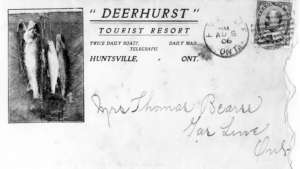 "DEERHURST"
TOURIST RESORT
TWICE DAILY BOAT. DAILY MAIL.
TELEGRAPH.
HUNTSVILLE, - ONT.
AU
06
ONT.
Mrs Thomas Bearse
Ont.